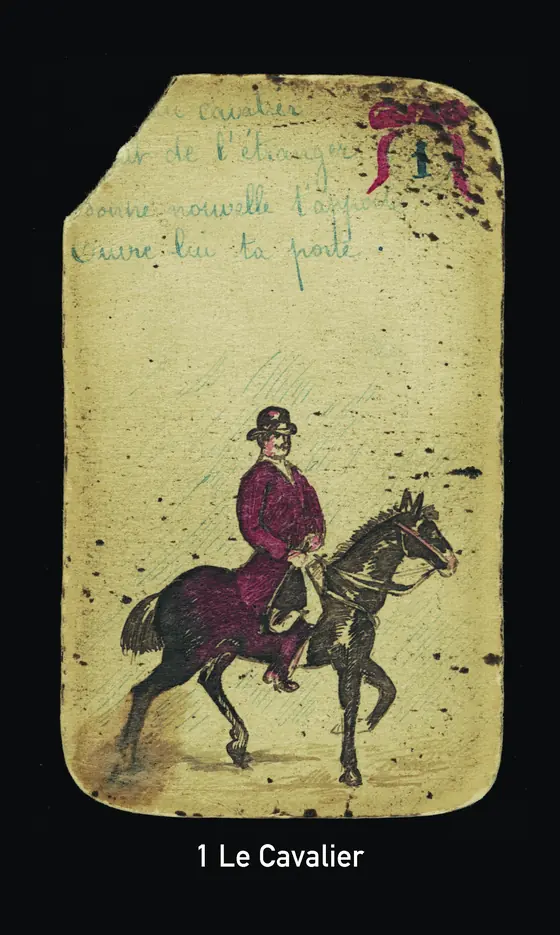 cavalier
de l'étranger
1
Bonne nouvelle t'apporte
Ouvre lui ta porte.
1 Le Cavalier